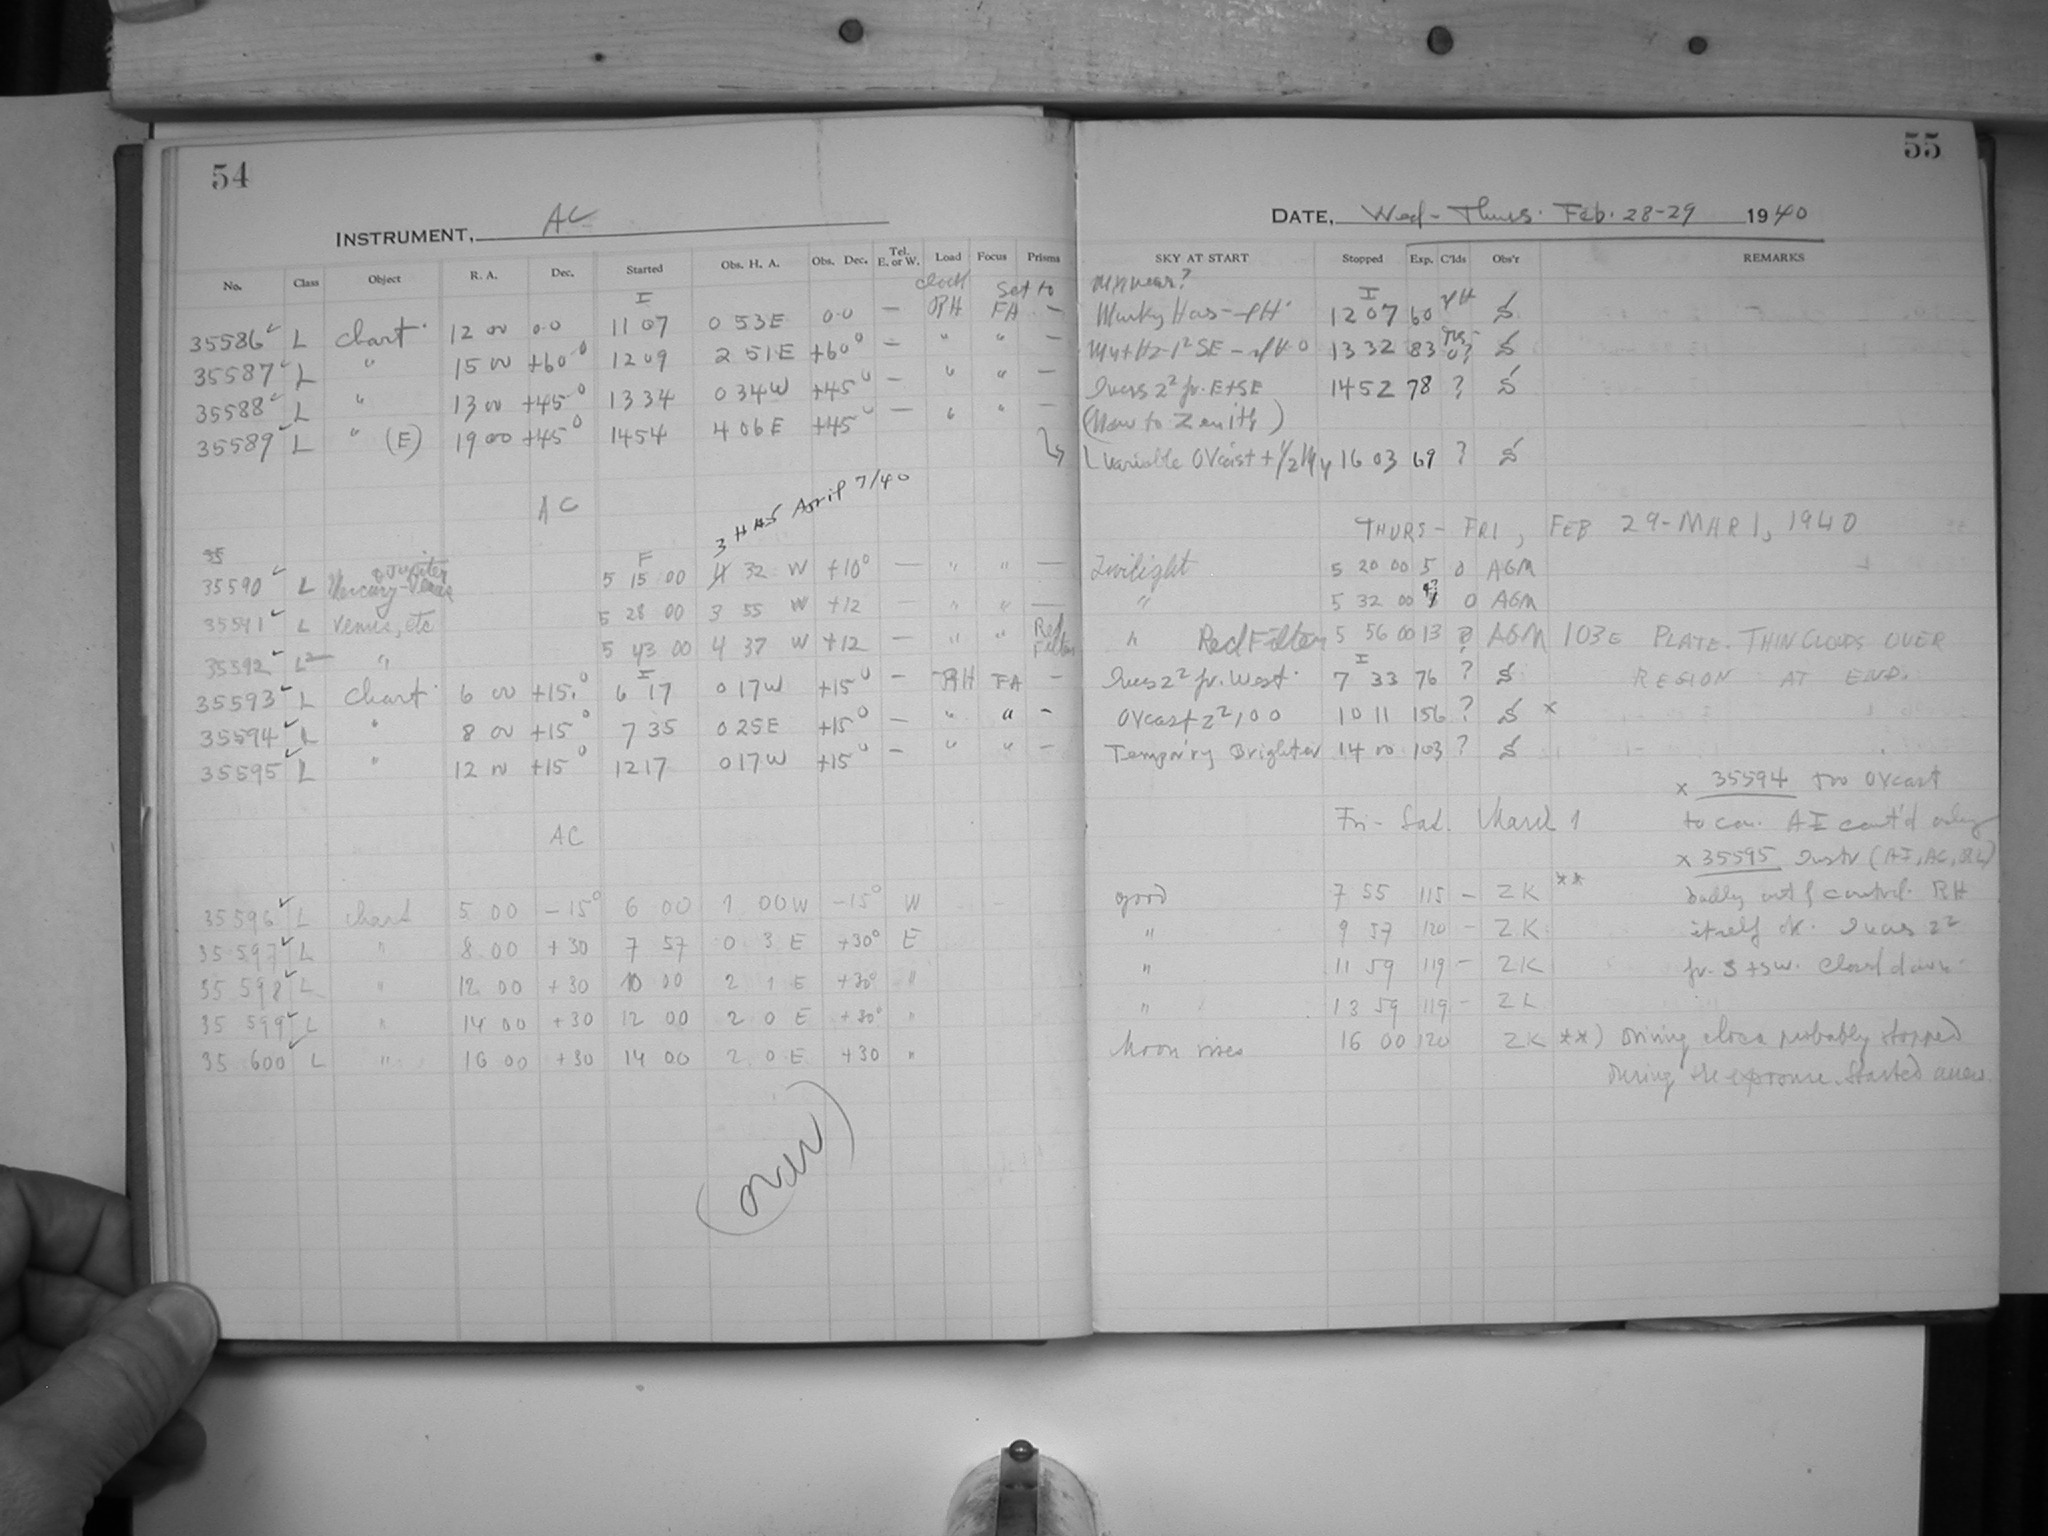 54
INSTRUMENT, AC
No. Class Object R. A. Dec. Started Obs. H. A. Obs. Dec. Tel. E. or W. Load Focus Prisms
clock Set to
I
35586 L Chart 12 00 0.0 11 07 0 53 E 0.0 — RH FA —
35587 L " 15 00 +60° 12 09 2 51 E +60° — " " —
35588 L " 13 00 +45° 13 34 0 34 W +45° — " " —
35589 L " (E) 19 00 +45° 14 54 4 06 E +45° — " " —
AC
3 HAS April 7/40
F
35590 L Mercury-Venus & Jupiter 5 15 00 4 32 W +10° — " " —
35591 L Venus, etc 5 28 00 3 55 W +12 — " " —
35592 L " 5 43 00 4 37 W +12 — " " Red Filter
I
35593 L Chart 6 00 +15° 6 17 0 17 W +15° — RH FA —
35594 L " 8 00 +15° 7 35 0 25 E +15° — " " —
35595 L " 12 00 +15° 12 17 0 17 W +15° — " " —
AC
35596 L chart 5 00 -15° 6 00 1 00 W -15° W
35597 L " 8 00 +30 7 57 0 3 E +30° E
35598 L " 12 00 +30 10 00 2 1 E +30° "
35599 L " 14 00 +30 12 00 2 0 E +30° "
35600 L " 16 00 +30 14 00 2 0 E +30 "
(over)
55
DATE, Wed - Thurs. Feb. 28-29 1940
SKY AT START Stopped Exp. C'lds Obs'r REMARKS
I
Murky 12 07 60 S
13 32 83 S
fr. E+SE 14 52 78 ? S
(Now to Zenith)
Variable OVcast + 1/2 16 03 69 ? S
THURS - FRI, FEB 29-MAR 1, 1940
Twilight 5 20 00 5 0 AGM
" 5 32 00 0 AGM
" Red Filter 5 56 00 13 ? AGM 103E PLATE. THIN CLOUDS OVER
REGION AT END.
I
fr. West 7 33 76 ? S
OVcast 10 11 156 ? S x
Temporary Brighter 14 00 103 ? S
x 35594 too OVcast
Fri - Sat. March 1
to con. AI cont'd only
x 35595 Instr (AI, AC,
good 7 55 115 - ZK **
badly out of control. RH
" 9 57 120 - ZK
itself ok.
" 11 59 119 - ZK
fr. S + SW. Closed down
" 13 59 119 - ZK
Moon rises 16 00 120 ZK **) Driving clock probably stopped
during the exposure. Started anew